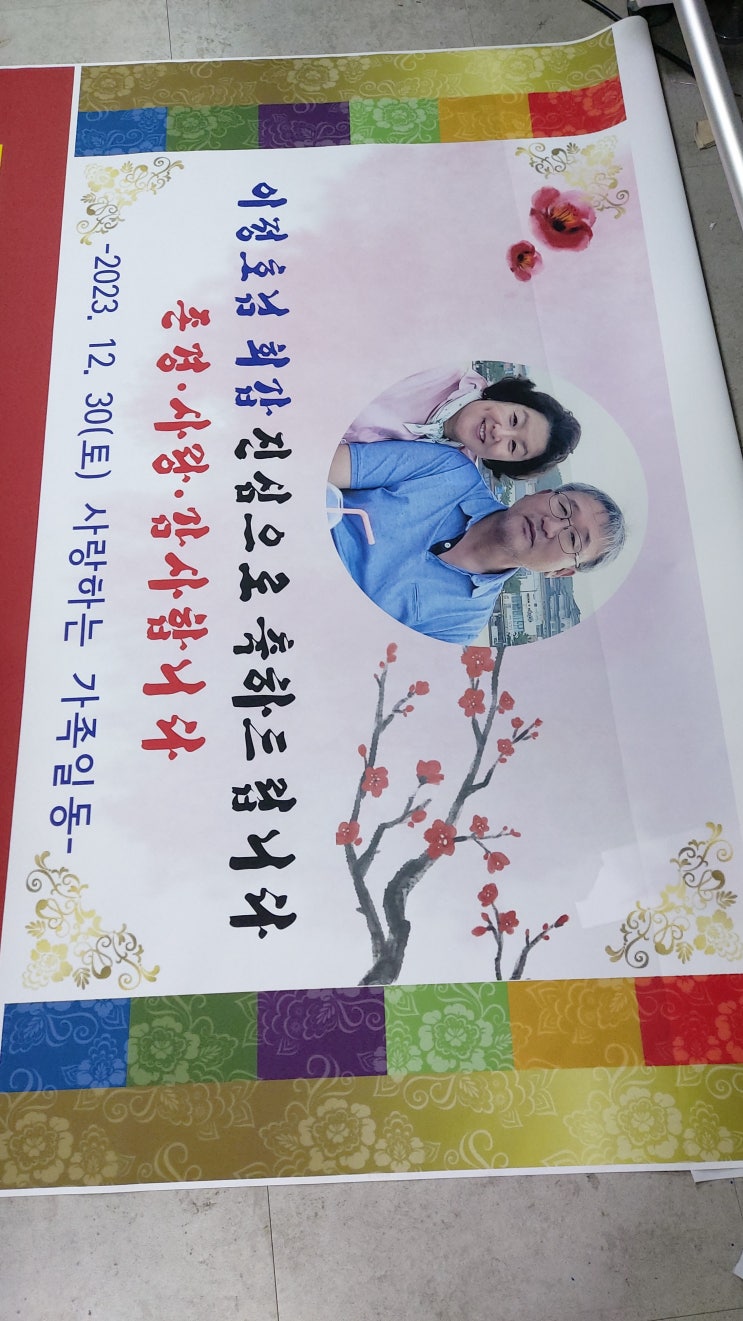 이정호님 회갑 진심으로 축하드립니다
존경·사랑·감사합니다
-2023. 12. 30(토) 사랑하는 가족일동-